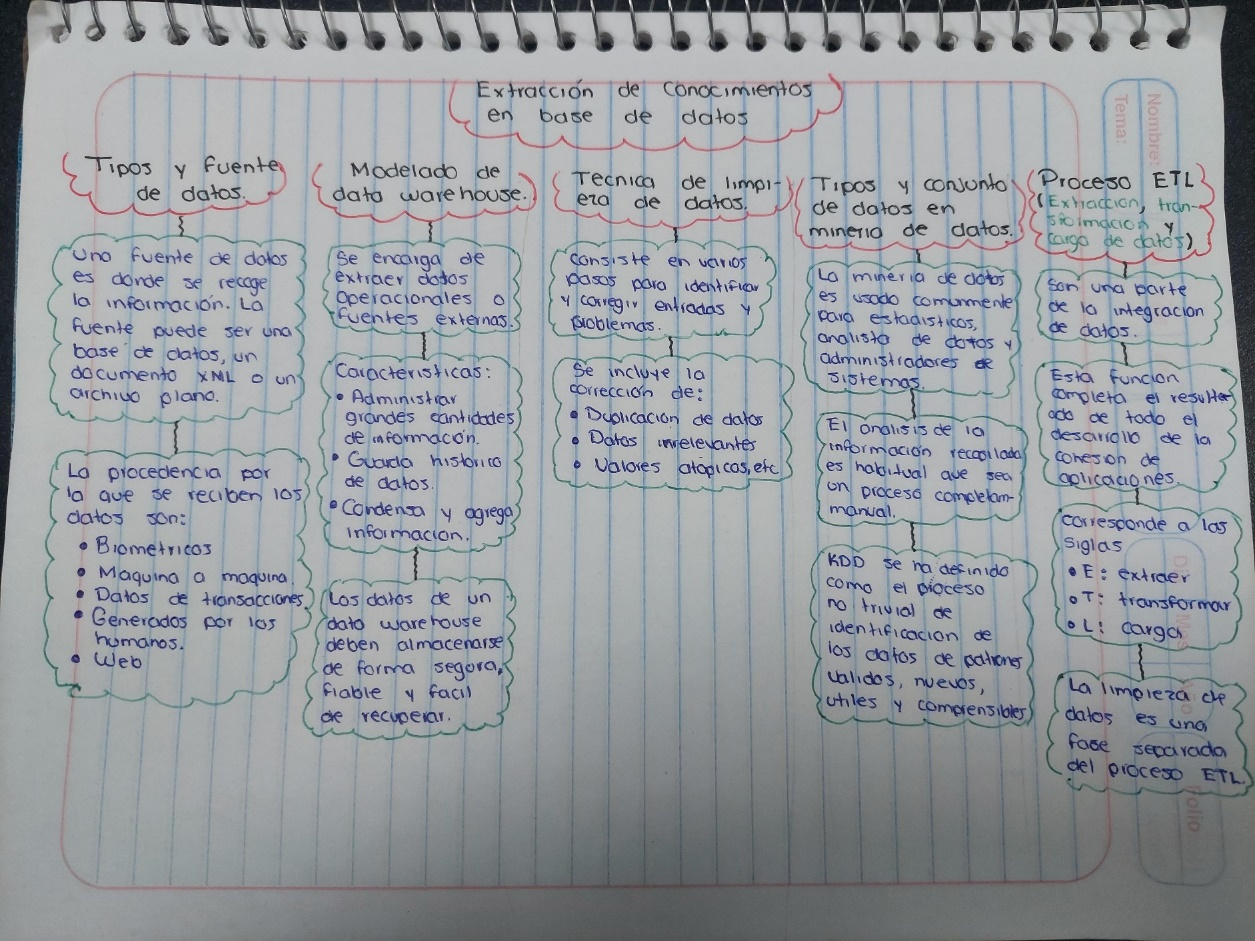 Extracción de conocimientos
en base de datos
Tipos y fuente
de datos.
Una fuente de datos
es donde se recoge
la información. La
fuente puede ser una
base de datos, un
documento XML o un
archivo plano.
La procedencia por
la que se reciben los
datos son:
• Biometricos
• Maquina a maquina.
• Datos de transacciones
• Generados por los
humanos.
• Web
Modelado de
data warehouse.
Se encarga de
extraer datos
operacionales o
fuentes externas.
Características:
• Administrar
grandes cantidades
de información.
• Guarda historico
de datos.
• Condensa y agrega
informacion.
Los datos de un
data warehouse
deben almacenarse
de forma segura,
fiable y facil
de recuperar.
Tecnica de limpi-
eza de datos.
Consiste en varios
pasos para identificar
y corregir entradas y
problemas.
Se incluye la
corrección de:
• Duplicacion de datos
• Datos irrelevantes
• Valores atapicas, etc
Tipos y conjunto
de datos en
mineria de datos.
La mineria de datos
es usado comunmente
para estadísticos,
analista de datos y
administradores de
sistemas.
El analisis de la
información recopilada
es habitual que sea
un proceso completam-
manual.
KDD se ha definido
como el proceso
no trivial de
identificacion de
los datos de patrones
validos, nuevos,
utiles y comprensibles
Proceso ETL
(Extraccion, tran-
sformacion y
carga de datos)
Son una parte
de la integracion
de datos.
Esta funcion
completa el result
ado de todo el
desarrollo de la
conexion de
aplicaciones.
Corresponde a las
siglas
• E: extraer
• T: transformar
• L: carga
La limpieza de
datos es una
fase separada
del proceso ETL
Nombre:
Tema:
Folio